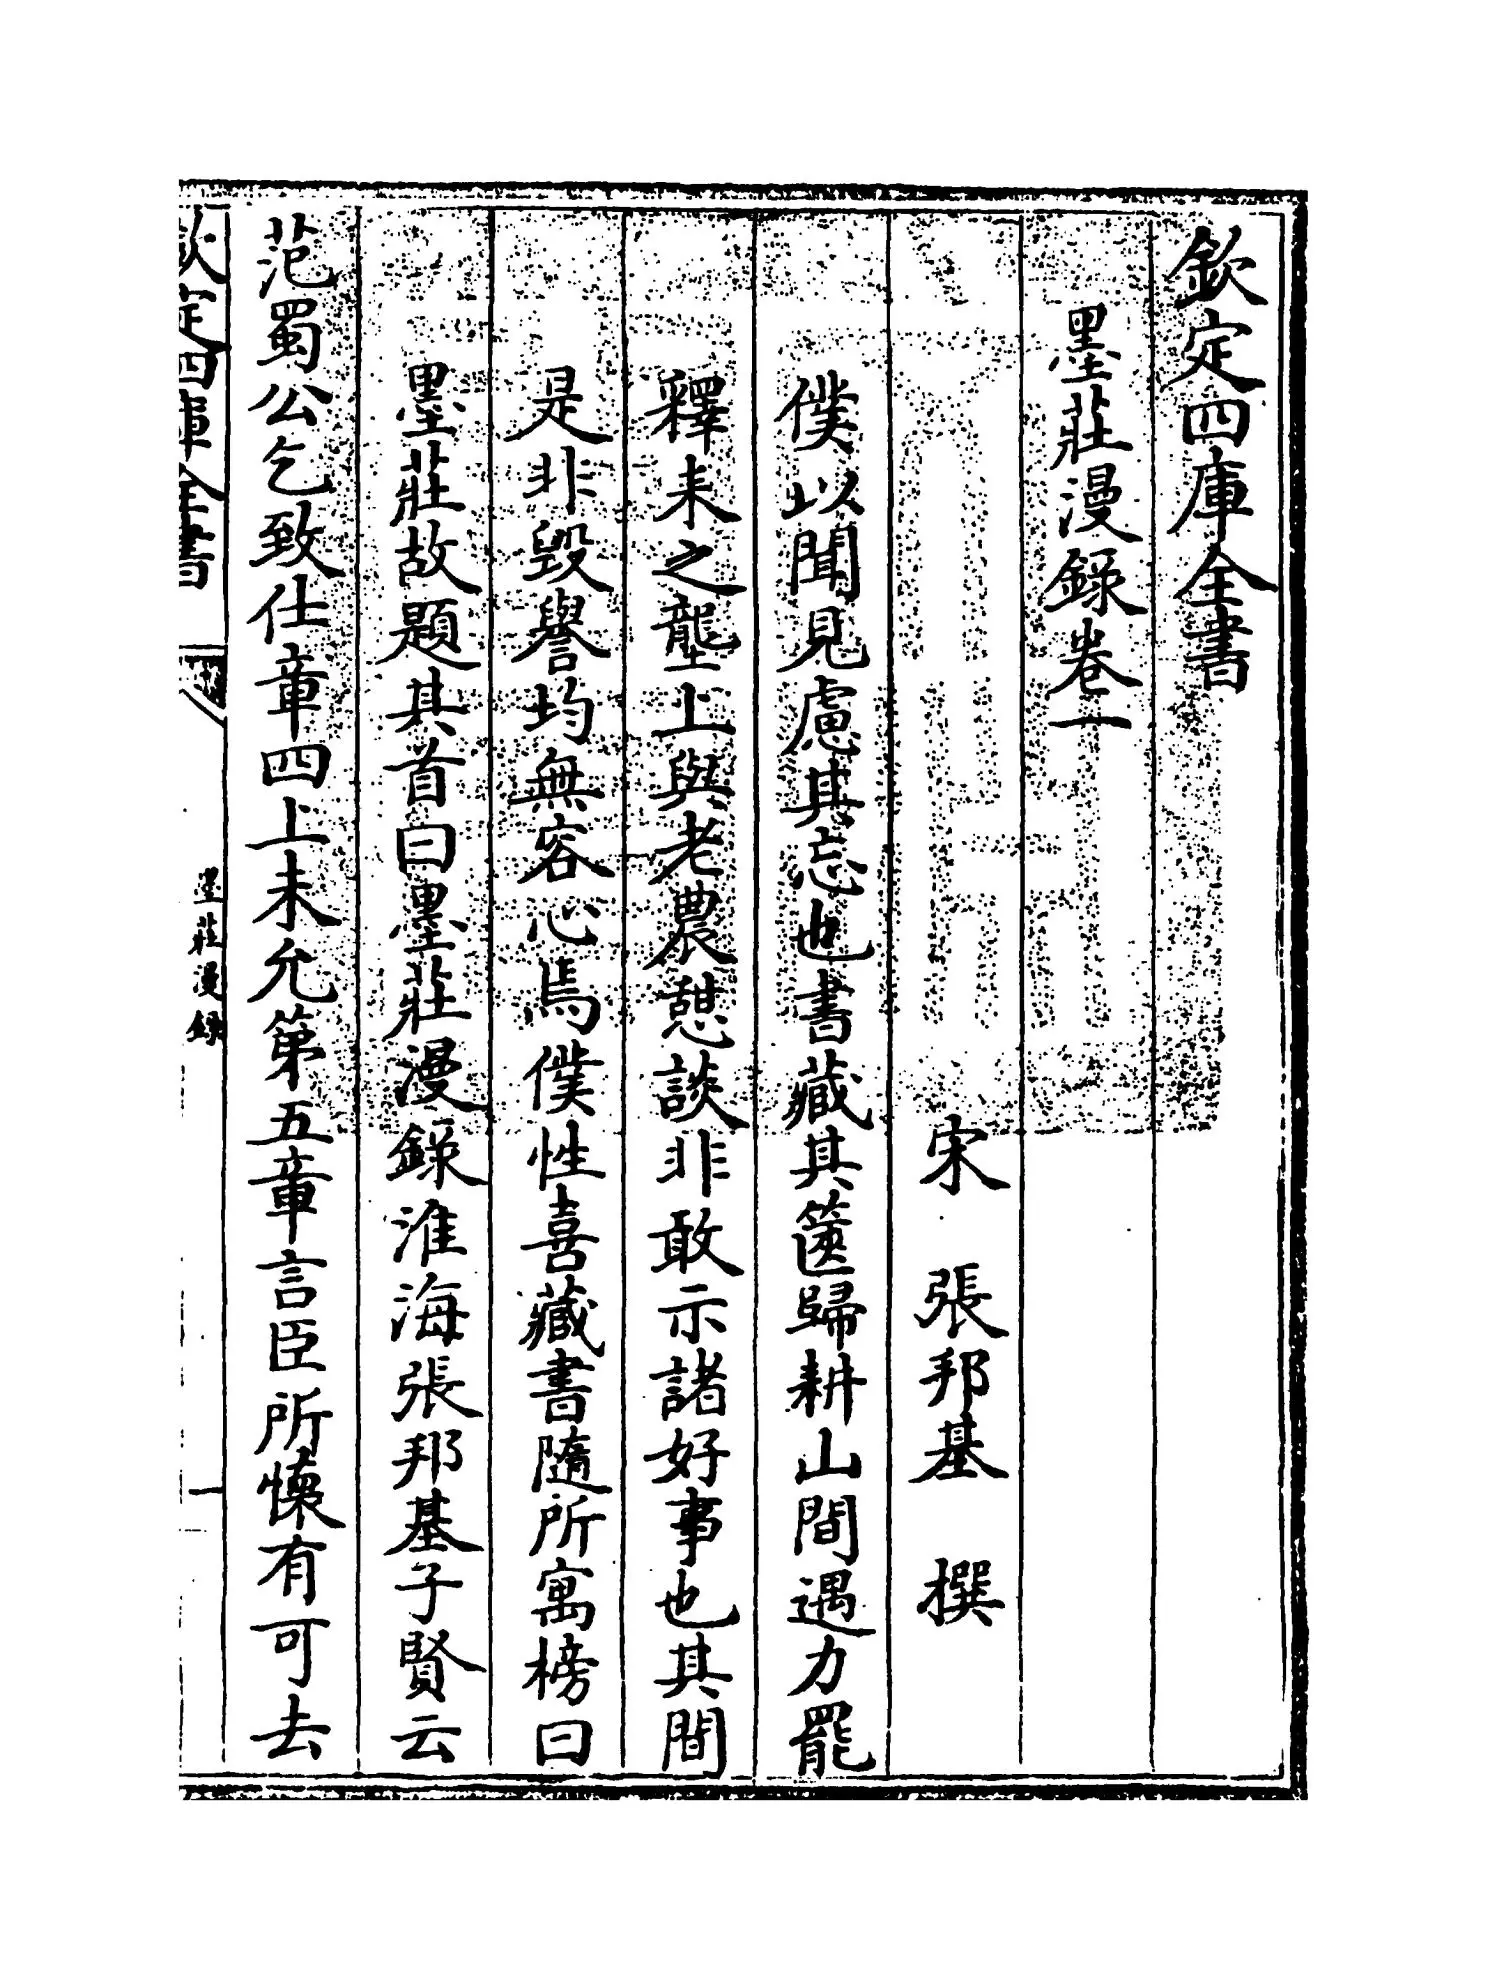 欽定四庫全書
墨莊漫錄卷一
宋 張邦基 撰
僕以聞見慮其忘也書藏其篋歸耕山間遇力罷
釋耒之壟上與老農憇談非敢示諸好事也其間
是非毀譽均無容心焉僕性喜藏書隨所寓榜曰
墨莊故題其首曰墨莊漫錄淮海張邦基子賢云
范蜀公乞致仕章四上未允第五章言臣所懷有可去
欽定四庫全書
墨莊漫錄
一